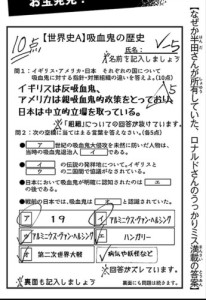 お宝発見!
【なぜか半田さんが所有していた、ロナルドさんのうっかりミス満載の答案】
10点
【世界史A】吸血鬼の歴史
氏名:
名前を記入しましょう
問1:イギリス・アメリカ・日本 それぞれの国について
吸血鬼に対する指針・対策組織の違いを答えよ。(10点)
イギリスは反吸血鬼、
アメリカは親吸血鬼的政策をとっており、
日本は中立的立場を取っている。
「組織」についての回答が抜けています。
問2:次の空欄に当てはまる言葉を答えなさい。(各5点)
ア 世紀の吸血鬼大侵攻を未然に防いだ人物は、
当時の吸血鬼退治人 イ である。
ウ の伝説の発祥地について、イギリスと
エ の二国間で協議がなされている。
日本において吸血鬼が明確に認知されたのは オ
の後である。
戦前の日本では、吸血鬼は カ と認識されていた。
ア 19
イ アルミニウス・ヴァン・ヘルシング
ウ アルミニウス・ヴァン・ヘルシング
エ ハンガリー
オ 第二次世界大戦
カ 病気や妖怪など
回答がズレています。
裏面も記入しましょう
裏面にも問題は続きます。